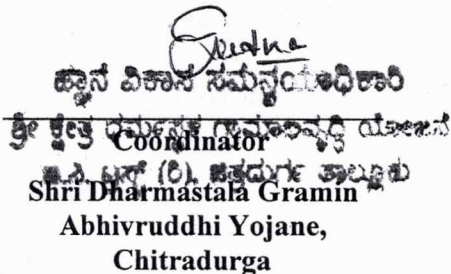 Geetha
ಜ್ಞಾನ ವಿಕಾಸ ಸಮನ್ವಯಾಧಿಕಾರಿ
ಶ್ರೀ ಕ್ಷೇತ್ರ ಧರ್ಮಸ್ಥಳ ಗ್ರಾಮಾಭಿವೃದ್ಧಿ ಯೋಜನೆ
Coordinator
ಬಿ.ಸಿ. ಟ್ರಸ್ಟ್ (ರಿ). ಚಿತ್ರದುರ್ಗ ತಾಲ್ಲೂಕು
Shri Dharmastala Gramin
Abhivruddhi Yojane,
Chitradurga